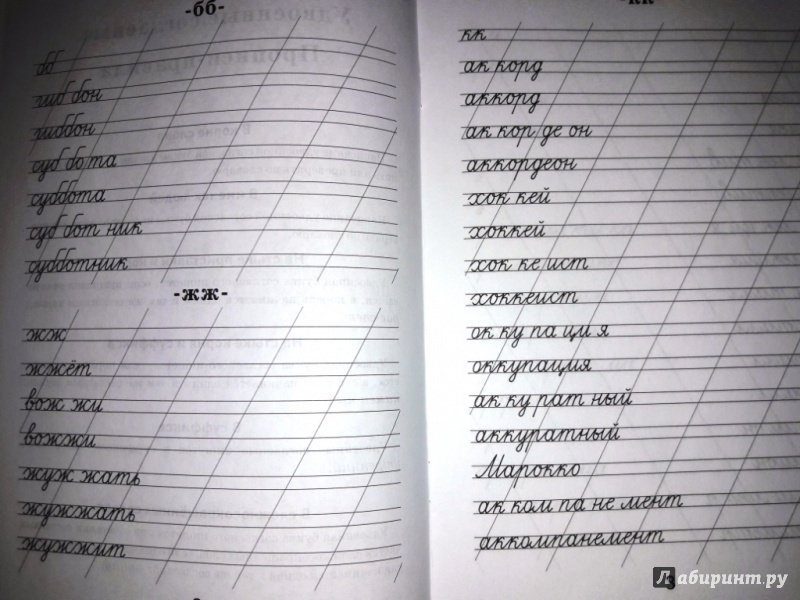 -бб-
бб
гиб бон
гиббон
суб бо та
суббота
суб бот ник
субботник
-жж-
жж
жжёт
вож жи
вожжи
жуж жать
жужжать
жужжит
-кк-
кк
ак корд
аккорд
ак кор де он
аккордеон
хок кей
хоккей
хок ке ист
хоккеист
ок ку па ци я
оккупация
ак ку рат ный
аккуратный
Марокко
ак ком па не мент
аккомпанемент
3
Лабиринт.ру